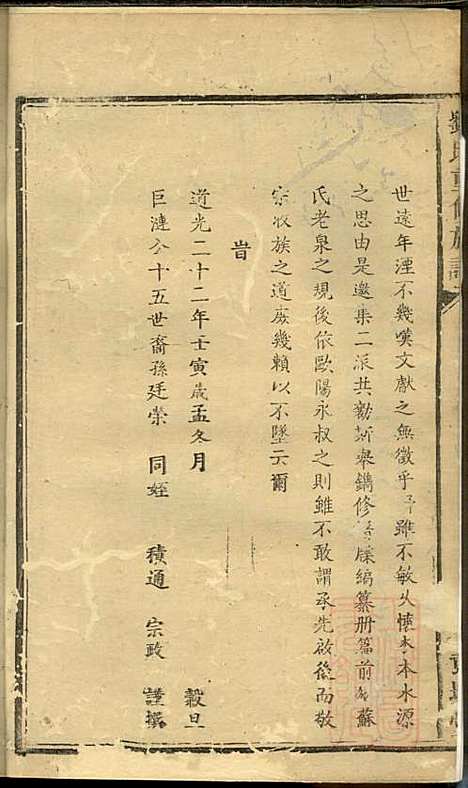 劉氏重修族譜
世遠年湮不幾嘆文獻之無徵乎予雖不敏久懷木本水源
之思由是邀集二派共勷斯舉鐫修譜牒編纂册篇前倣蘇
氏老泉之規後依歐陽永叔之則雖不敢謂承先啟後而敬
宗收族之道庶幾賴以不墜云爾
旹
道光二十二年壬寅歲孟冬月 穀旦
巨漣公十五世裔孫廷榮 同姪 積通 宗政 謹撰